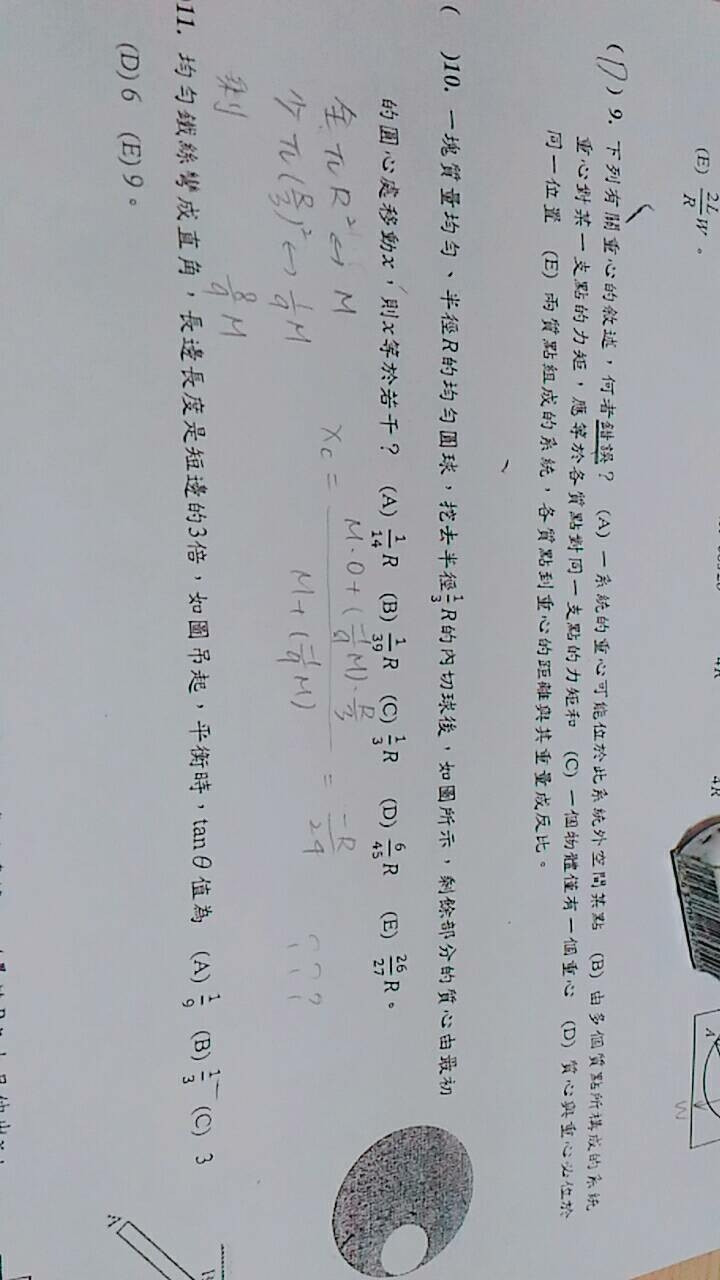 (E) 2L/R W。
(D) 9. 下列有關重心的敘述，何者錯誤？ (A) 一系統的重心可能位於此系統外空間某點 (B) 由多個質點所構成的系統
重心對某一支點的力矩，應等於各質點對同一支點的力矩和 (C) 一個物體僅有一個重心 (D) 質心與重心必位於
同一位置 (E) 兩質點組成的系統，各質點到重心的距離與其重量成反比。
( )10. 一塊質量均勻、半徑R的均勻圓球，挖去半徑1/3R的內切球後，如圖所示，剩餘部分的質心由最初
的圓心處移動x，則x等於若干？ (A) 1/14 R (B) 1/39 R (C) 1/3 R (D) 6/45 R (E) 26/27 R。
全 πR² ↔ M
少 π(R/3)² ↔ 1/9 M
剩 8/9 M
Xc = (M·0+(-1/9 M)·R/3) / (M+(-1/9 M)) = -R/24 ???
11. 均勻鐵絲彎成直角，長邊長度是短邊的3倍，如圖吊起，平衡時，tanθ值為 (A) 1/9 (B) 1/3 (C) 3
(D) 6 (E) 9。